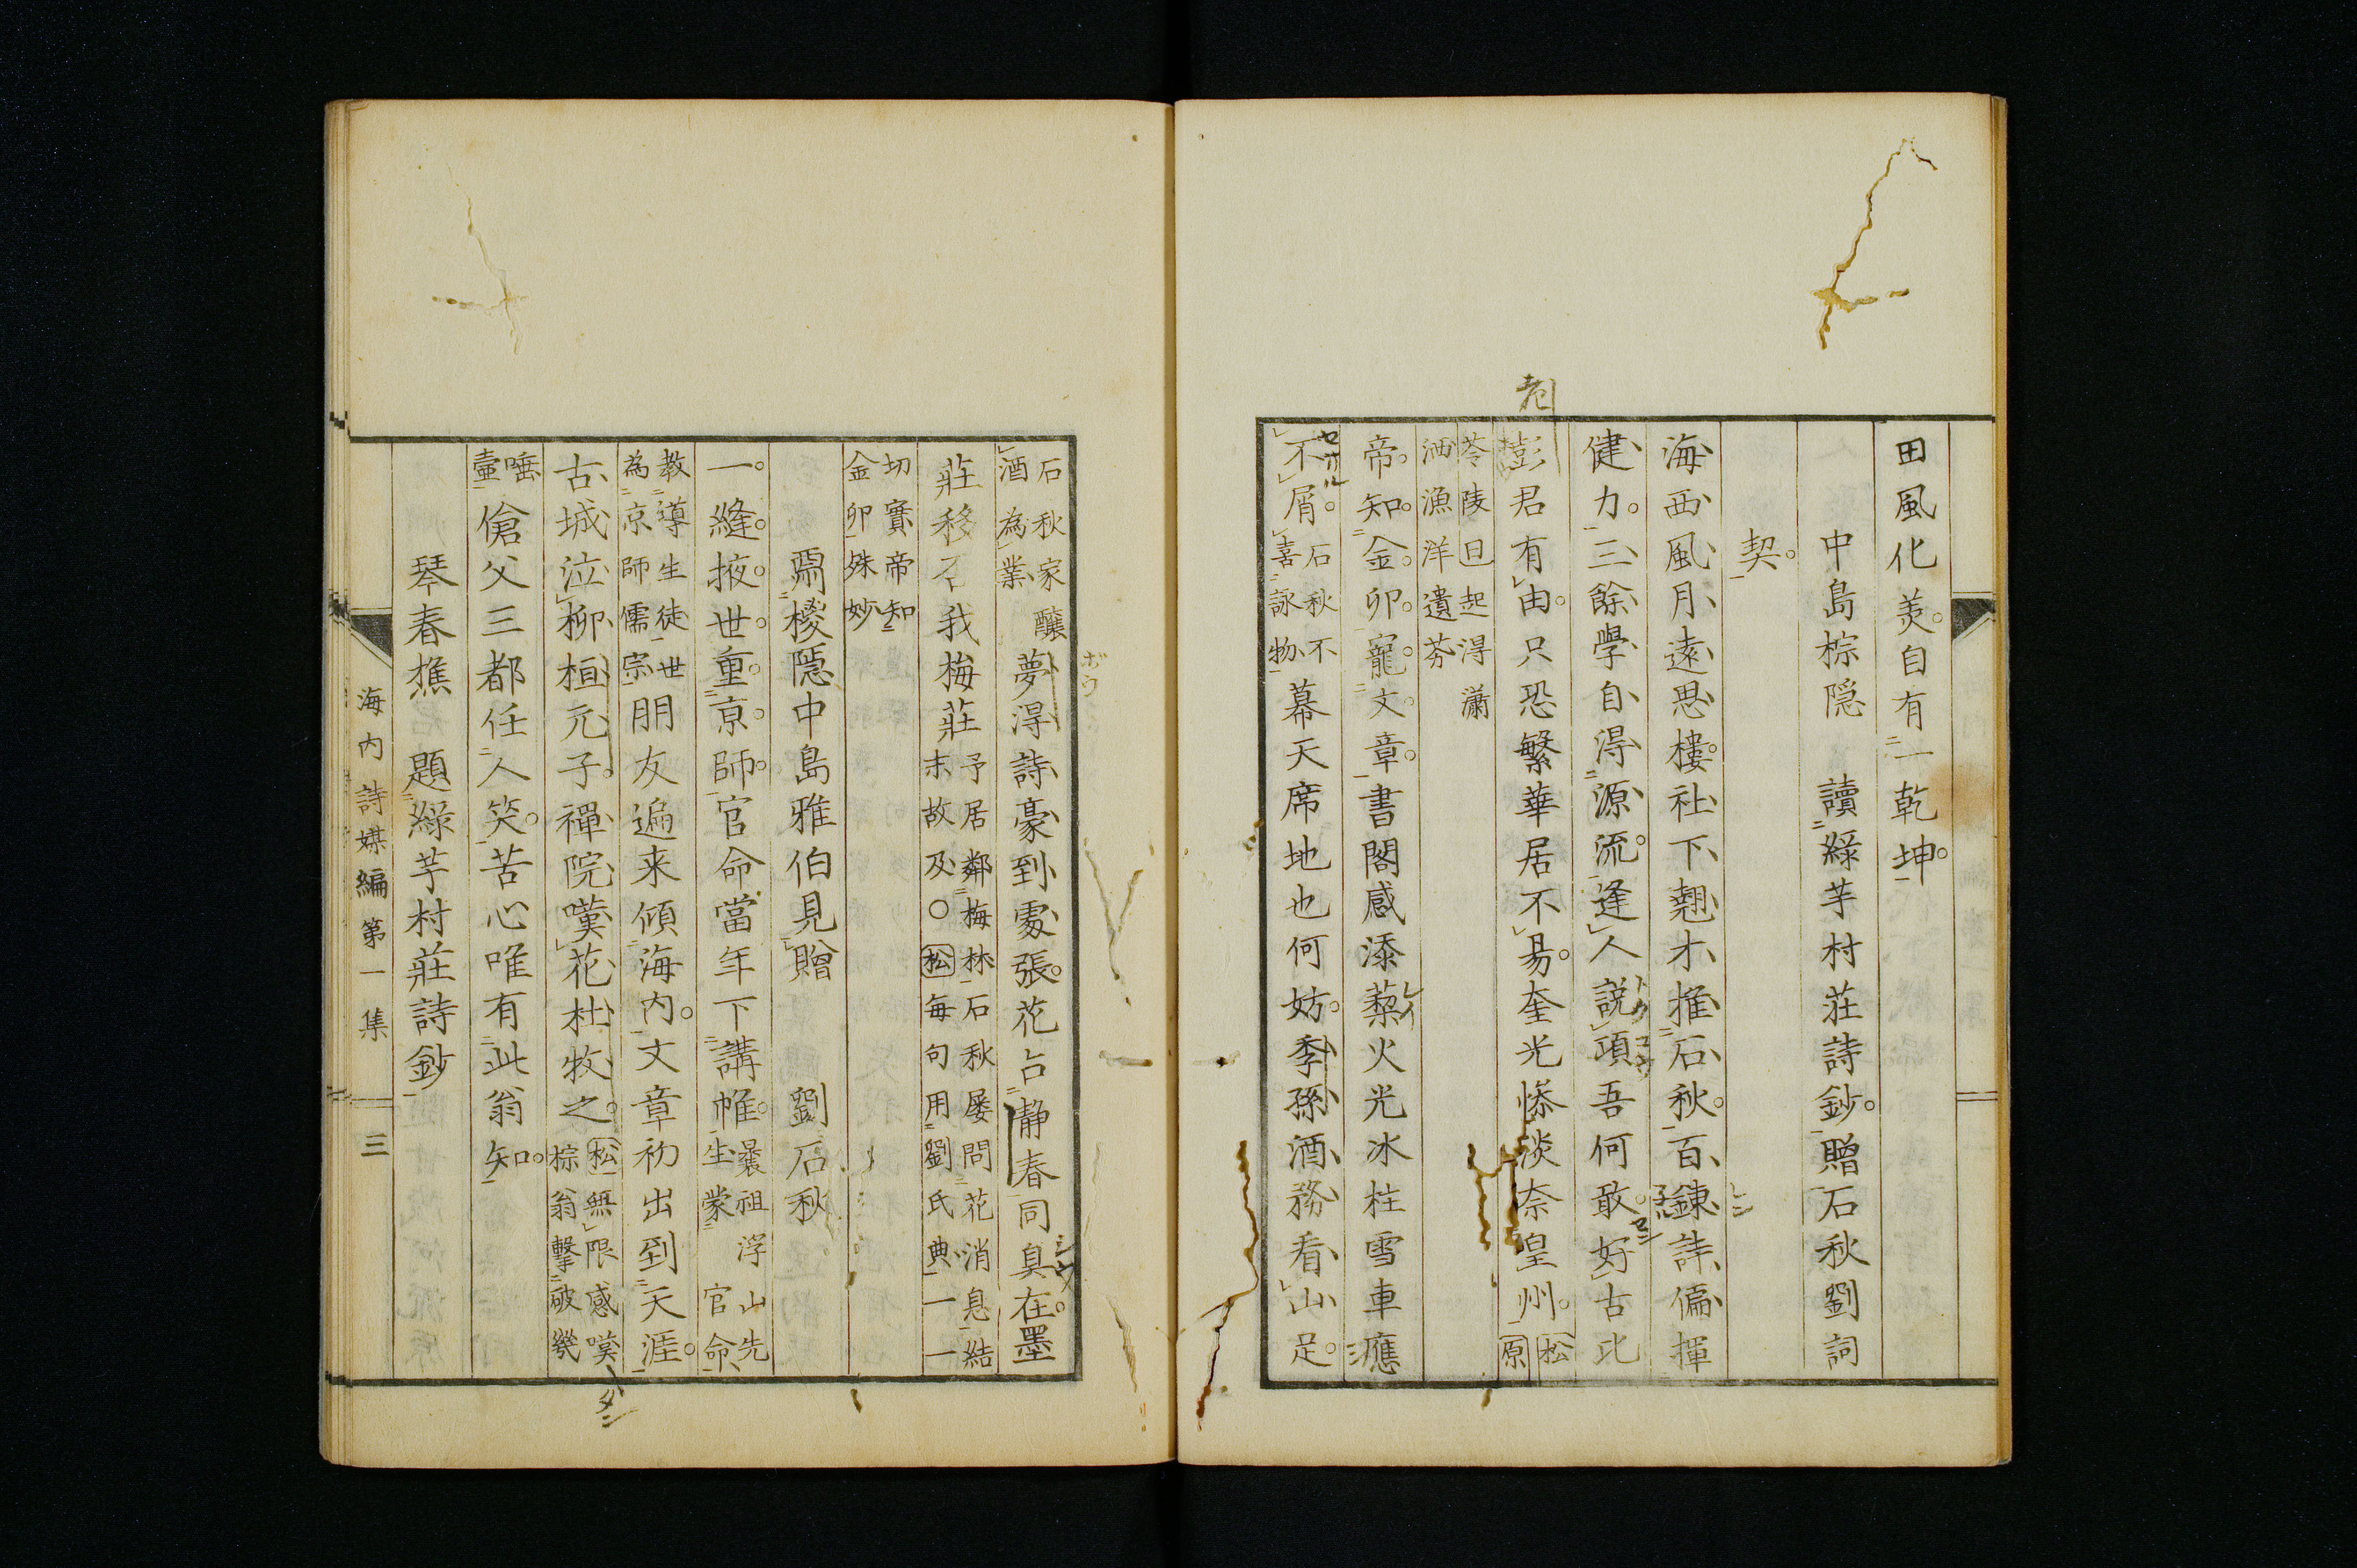 田風化羨自有一乾坤
中島棕隠　讀綠芋村荘詩鈔贈石秋劉詞
契
海西風月遠思樓社下翹才推石秋百鍊詩偏揮
健力三餘學自得源流逢人説項吾何敢好古
彭君有由只恐繁華居不易奎光惨淡奈皇州
松
原
苓陵曰起得瀟
洒漁洋遺芬
帝知金卯寵文章書閣感添藜火光冰柱雪車應
不屑
石秋不
喜詠物
幕天席地也何妨季孫酒務看山足
石秋家釀
酒為業
夢得詩豪到處張花占静春同臭在墨
莊移不我梅莊
予居鄰梅林石秋屡問花消息結
末故及○松毎句用劉氏典一一
切實帝知
金卯殊妙
㝢椶隠中島雅伯見贈　劉石秋
一縫掖世重京師官命當年下講帷
曩祖浮山先
生蒙官命
教導生徒世
為京師儒宗
朋友遍来傾海内文章初出到天涯
古城泣柳桓元子禪院嘆花杜牧之
松無限感嘆
棕翁撃破幾
唾
壷
傖父三都任人笑苦心唯有此翁知
琴春樵　題綠芋村莊詩鈔
海内詩媒編第一集　三